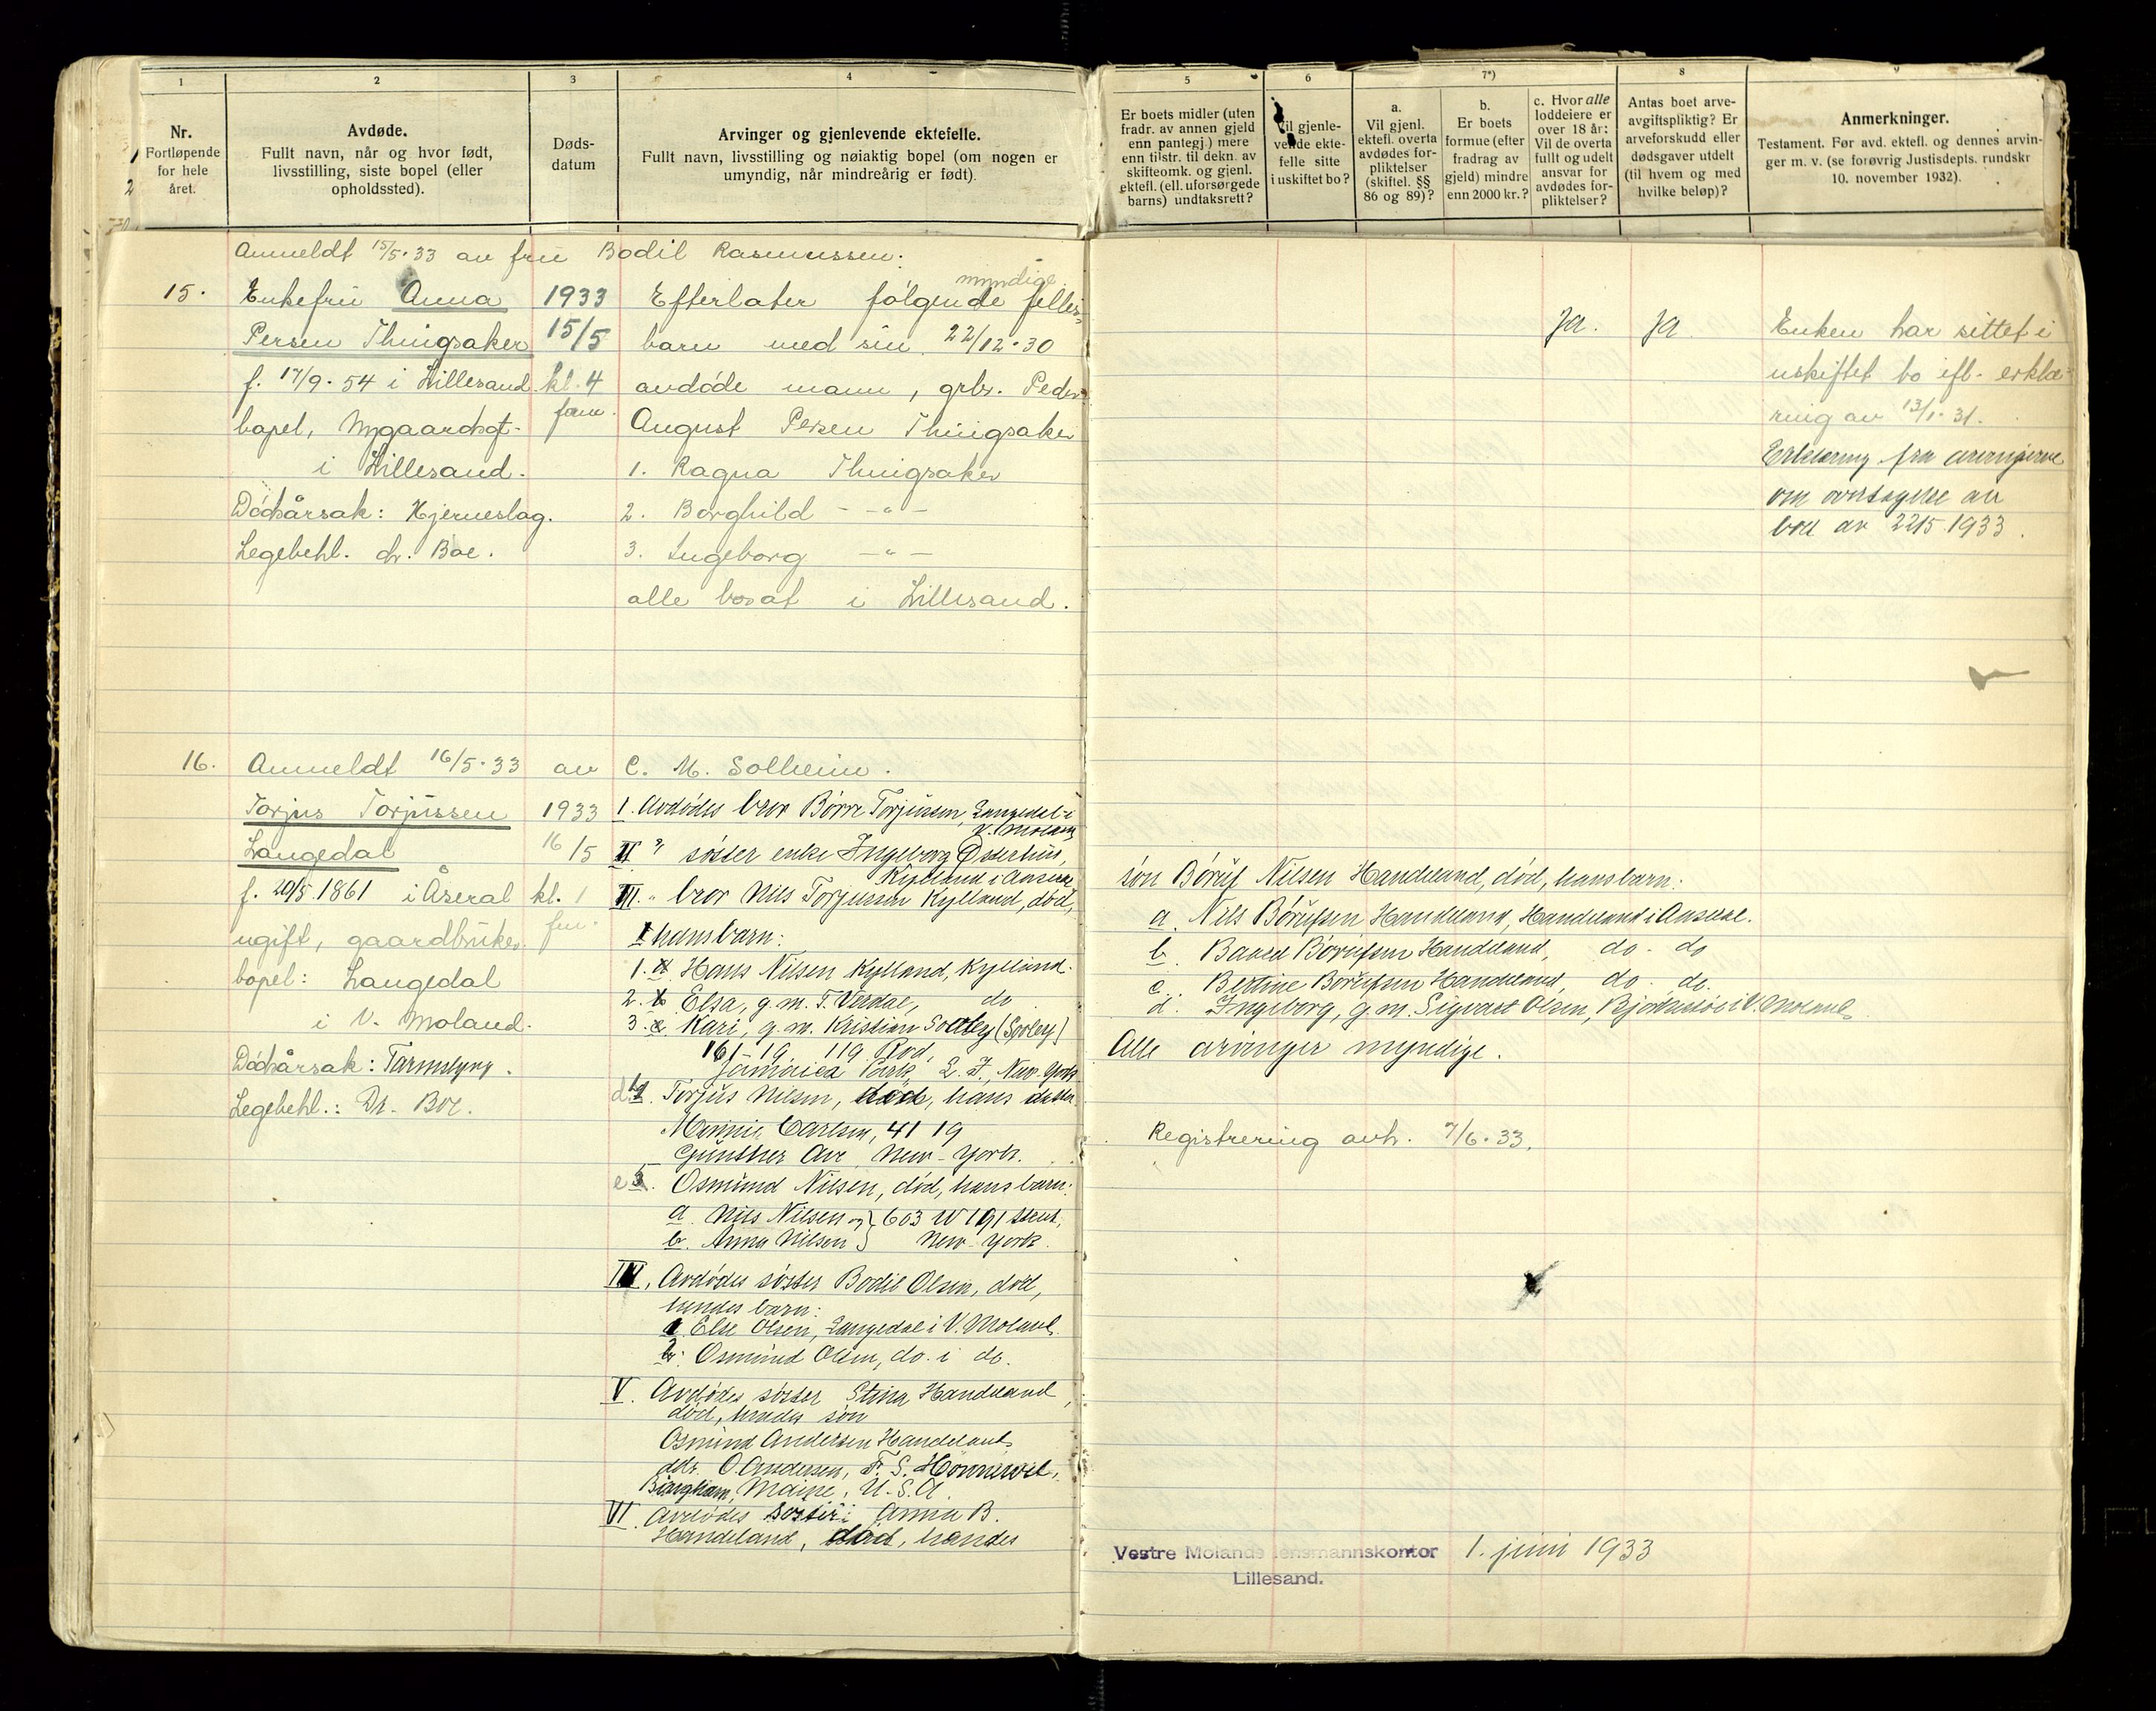 1
Nr.
Fortløpende
for hele
året.
2
Avdøde.
Fullt navn, når og hvor født,
livsstilling, siste bopel (eller
opholdssted).
3
Døds-
datum
4
Arvinger og gjenlevende ektefelle.
Fullt navn, livsstilling og nøiaktig bopel (om nogen er
umyndig, når mindreårig er født).
5
Er boets midler (uten
fradr. av annen gjeld
enn pantegj.) mere
enn tilstr. til dekn. av
skifteomk. og gjenl.
ektefl. (ell. uforsørgede
barns) undtaksrett?
6
Vil gjenle-
vende ekte-
felle sitte
i uskiftet bo?
7*)
a.
Vil gjenl.
ektefl. overta
avdødes for-
pliktelser
(skiftel. §§
86 og 89)?
b.
Er boets
formue (efter
fradrag av
gjeld) mindre
enn 2000 kr.?
c. Hvor alle
loddeiere er
over 18 år:
Vil de overta
fullt og udelt
ansvar for
avdødes for-
pliktelser?
8
Antas boet arve-
avgiftspliktig? Er
arveforskudd eller
dødsgaver utdelt
(til hvem og med
hvilke beløp)?
9
Anmerkninger.
Testament. Før avd. ektefl. og dennes arvin-
ger m. v. (se forøvrig Justisdepls. rundskr
10. november 1932).
Anmeldt 15/5.33 av fru Bodil Rasmussen.
15.
Enkefru Anna
Persen Thingsaker
f. 17/9.54 i Lillesand.
bopel, Nygaardsgt.
i Lillesand.
Dödsårsak: Hjerneslag.
Legebehl. dr. Boe.
1933
15/5
kl. 4
fm.
myndige
Efterlater følgende felles-
barn med sin 22/12.30
avdøde mann, grbr. Peder
August Persen Thingsaker
1. Ragna Thingsaker
2. Borghild - " -
3. Ingeborg - " -
alle bosat i Lillesand.
Ja. Ja
Enken har sittet i
uskiftet bo efl. erklæ-
ring av 13/1.31.
Erklæring fra arvingerne
om overtagelse av
boet av 22/5.1933.
16. Anmeldt 16/5.33 av C. M. Solheim.
Torjus Torjussen
Langedal
f. 20/5.1861 i Åseral
ugift, gaardbruker.
bopel: Langedal
i V. Moland.
Dödsårsak: Tarmslyng.
Legebehl.: Dr. Boe.
1933
16/5
kl. 1
fm.
1. Avdødes bror Torjussen, Langedal i
V. Moland
II " søster enke Ingeborg Østerhus,
Kylland i Åseral
III. " bror Nils Torjussen Kylland, død,
hans barn:
1. a Hans Nilsen Kylland, Kylland.
2. b Elsa, g.m. T. Verdal, do
3. c Kari, g.m. Kristian (Sooley)
161-19 119 Rod,
Jamaica Park L. I., New-York
d 4. Torjus Nilsen, død, hans datter
Minnie Carlsen, 41 19
Gunther Ave, New-York.
e 5. Osmund Nilsen, død, hans barn:
a. Nils Nilsen og } 603 W 191 Street,
b. Anna Nilsen } New-York.
Avdødes søster Bodil Olsen, død,
hendes barn:
Else Olsen, Langedal i V. Moland.
Osmund Olsen, do. i do.
V. Avdødes søster Stina Handeland,
død, hendes søn
Osmund Andersen Handeland
adr. O Andersen, F. S.
Bingham, Maine, U.S.A
VI. Avdødes søster: Anna B.
Handeland, død, hendes
søn Børuf Nilsen Handeland, død, hans barn:
a. Nils Børufsen Handeland, Handeland i Aaseral.
b. Baard Børufsen Handeland, do. do
c. Bertine Børufsen Handeland, do. do.
d. Ingeborg, g.m. Sigvart Olsen, i V. Moland
Alle arvinger myndige.
Registrering avh. 7/6.33.
Vestre Molands lensmannskontor 1. juni 1933
Lillesand.